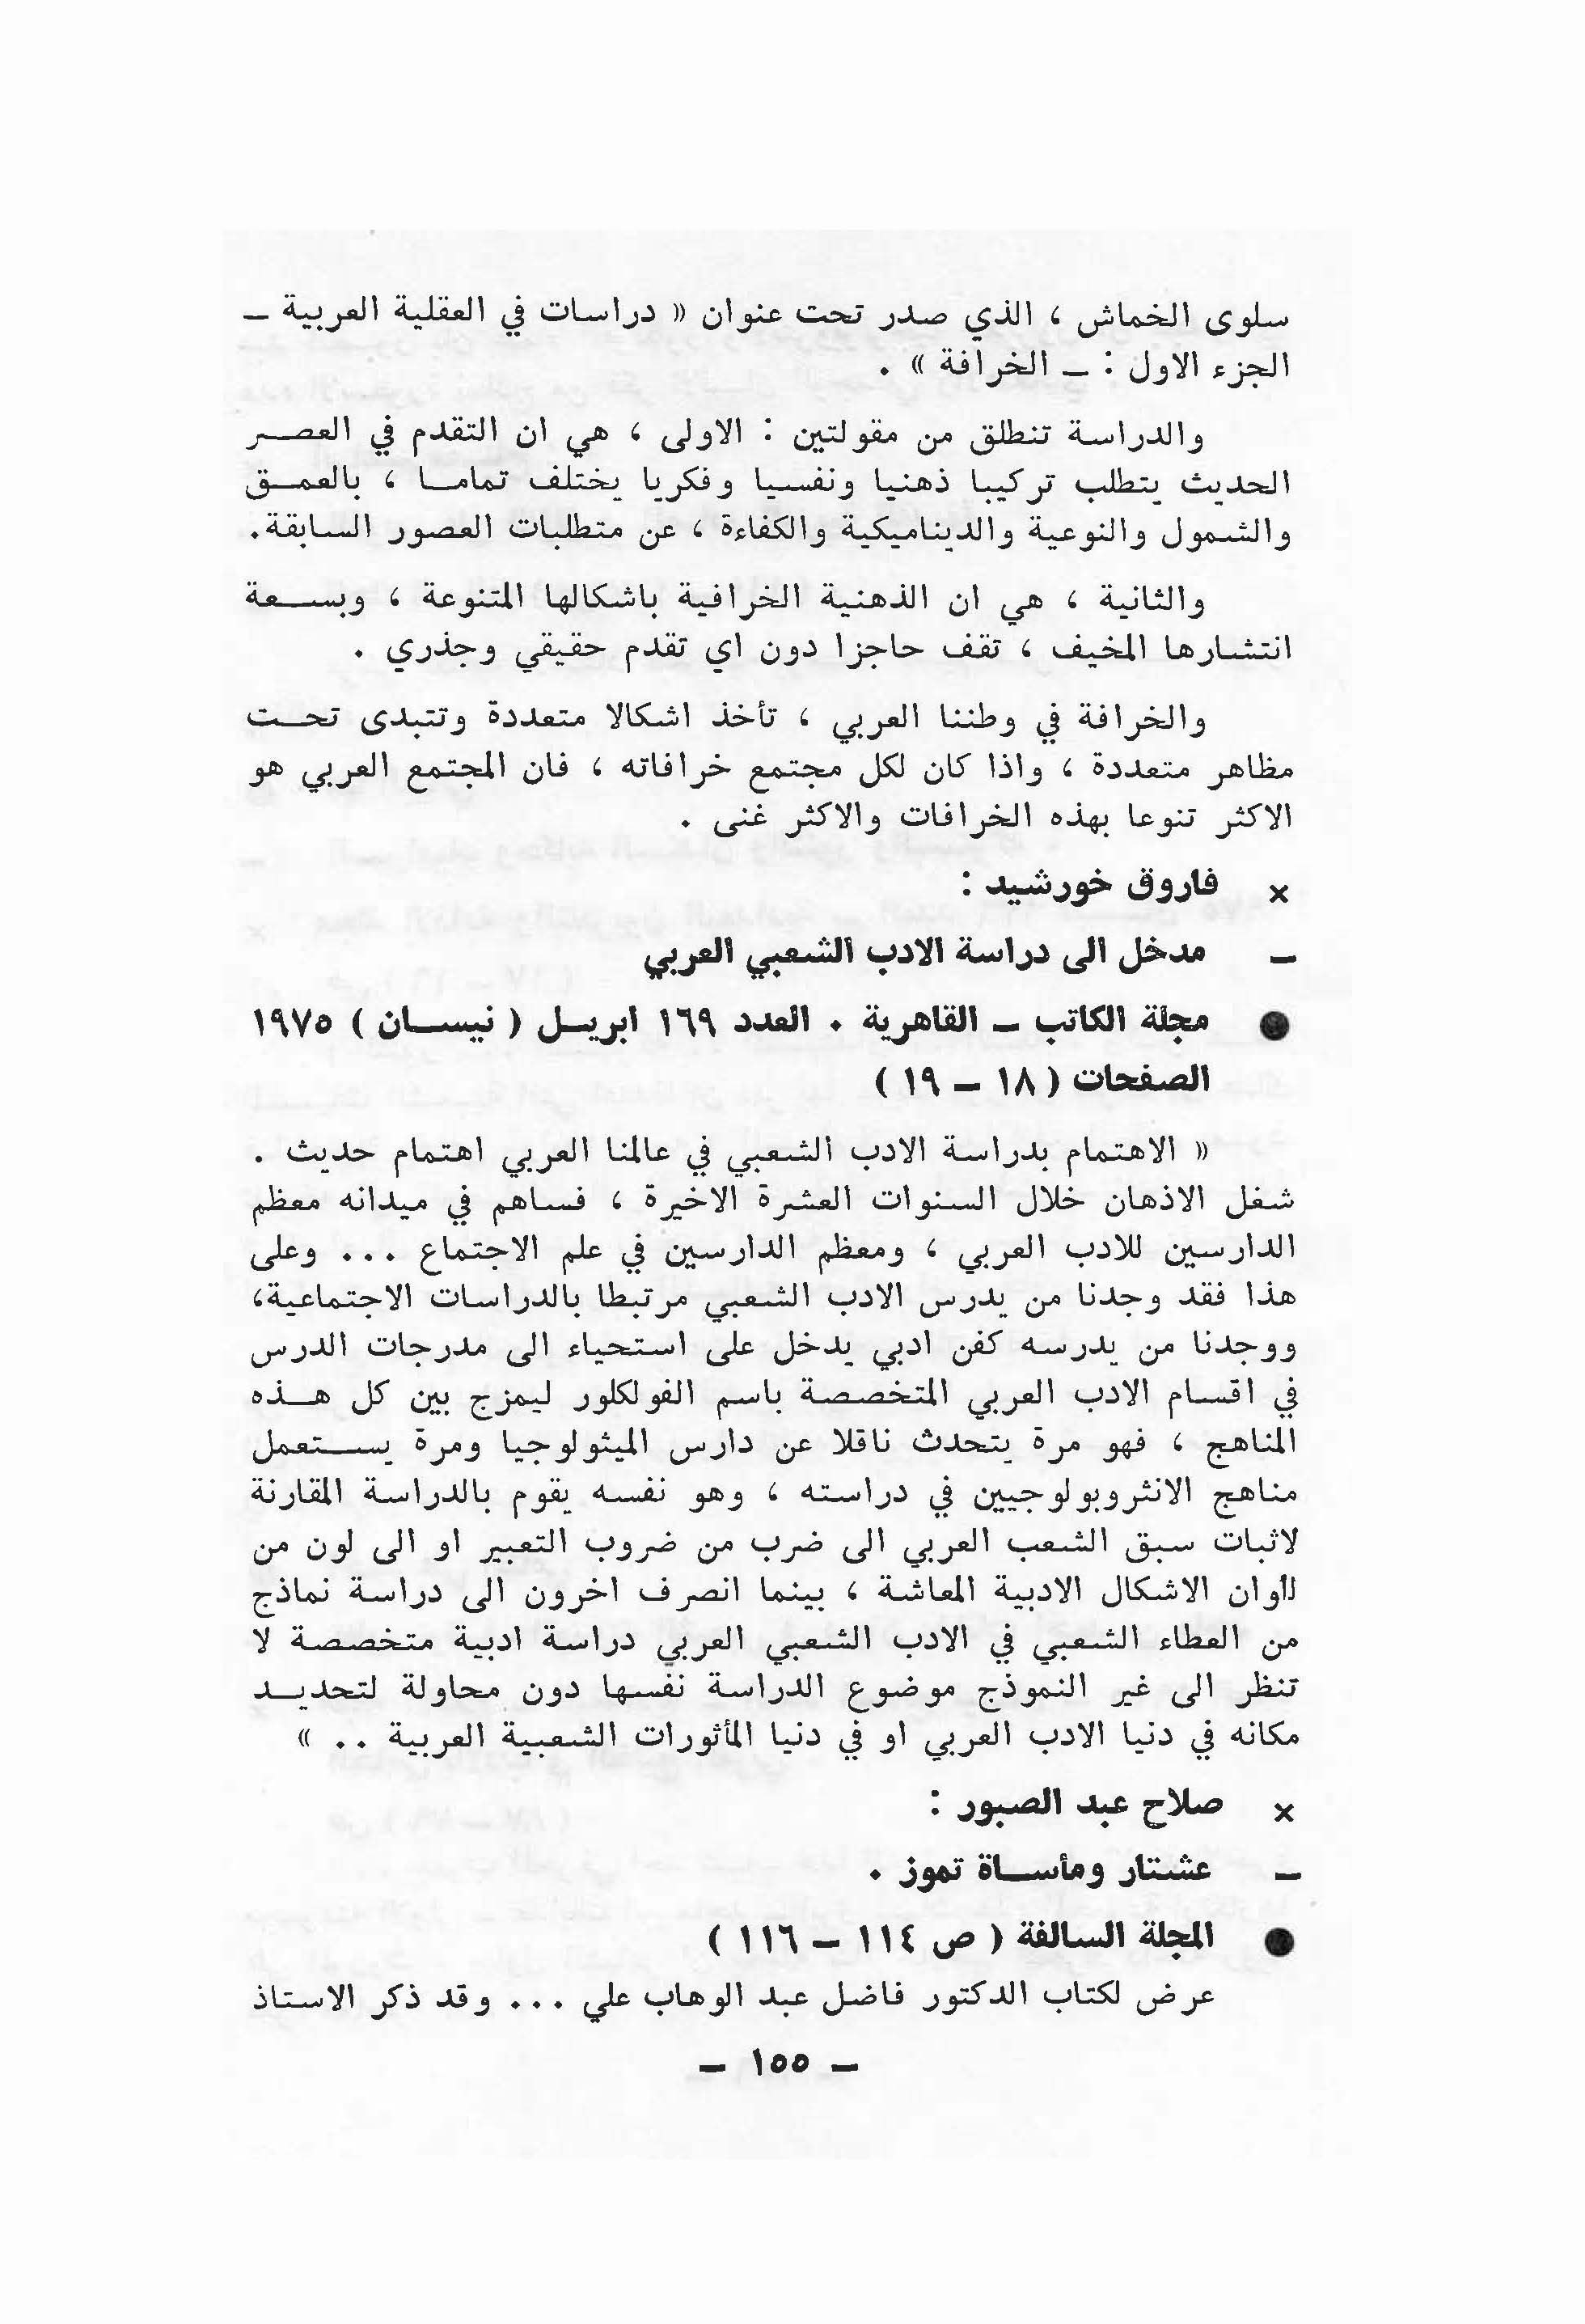 سلوى الخماش ، الذي صدر تحت عنوان « دراسات في العقلية العربية –
الجزء الاول : – الخرافة » .
والدراسة تنطلق من مقولتين : الاولى ، هي ان التقدم في العصر
الحديث يتطلب تركيبا ذهنيا ونفسيا وفكريا يختلف تماما ، بالعمق
والشمول والنوعية والديناميكية والكفاءة ، عن متطلبات العصور السابقة.
والثانية ، هي ان الذهنية الخرافية باشكالها المتنوعة ، وبسعة
انتشارها المخيف ، تقف حاجزا دون اي تقدم حقيقي وجذري .
والخرافة في وطننا العربي ، تأخذ اشكالا متعددة وتتبدى تحت
مظاهر متعددة ، واذا كان لكل مجتمع خرافاته ، فان المجتمع العربي هو
الاكثر تنوعا بهذه الخرافات والاكثر غنى .
× فاروق خورشيد :
– مدخل الى دراسة الادب الشعبي العربي
● مجلة الكاتب – القاهرية . العدد ١٦٩ ابريل ( نيسان ) ١٩٧٥
الصفحات ( ١٨ – ١٩ )
« الاهتمام بدراسة الادب الشعبي في عالمنا العربي اهتمام حديث .
شغل الاذهان خلال السنوات العشرة الاخيرة ، فساهم في ميدانه معظم
الدارسين للادب العربي ، ومعظم الدارسين في علم الاجتماع ... وعلى
هذا فقد وجدنا من يدرس الادب الشعبي مرتبطا بالدراسات الاجتماعية،
ووجدنا من يدرسه كفن ادبي يدخل على استحياء الى مدرجات الدرس
في اقسام الادب العربي المتخصصة باسم الفولكلور ليمزج بين كل هذه
المناهج ، فهو مرة يتحدث ناقلا عن دارس الميثولوجيا ومرة يستعمل
مناهج الانثروبولوجيين في دراسته ، وهو نفسه يقوم بالدراسة المقارنة
لاثبات سبق الشعب العربي الى ضرب من ضروب التعبير او الى لون من
األوان الاشكال الادبية المعاشة ، بينما انصرف اخرون الى دراسة نماذج
من العطاء الشعبي في الادب الشعبي العربي دراسة ادبية متخصصة لا
تنظر الى غير النموذج موضوع الدراسة نفسها دون محاولة لتحديد
مكانه في دنيا الادب العربي او في دنيا المأثورات الشعبية العربية .. »
× صلاح عبد الصبور :
– عشتار ومأساة تموز .
● المجلة السالفة ( ص ١١٤ – ١١٦ )
عرض لكتاب الدكتور فاضل عبد الوهاب علي ... وقد ذكر الاستاذ
– ١٥٥ –